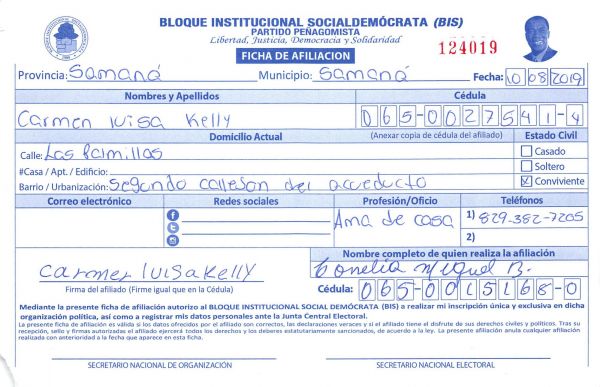 BLOQUE INSTITUCIONAL SOCIALDEMÓCRATA (BIS)
PARTIDO PEÑAGOMISTA
Libertad, Justicia, Democracia y Solidaridad
FICHA DE AFILIACION
124019
Provincia: Samaná Municipio: Samaná Fecha: 10 08 2019
Nombres y Apellidos Cédula
Carmen luisa Kelly 065-0027541-4
Domicilio Actual (Anexar copia de cédula del afiliado) Estado Civil
Calle: Las Palmillas Casado
#Casa / Apt. / Edificio: Soltero
Barrio / Urbanización: Segundo calleson del acueducto Conviviente
Correo electrónico Redes sociales Profesión/Oficio Teléfonos
Ama de casa 1) 829-382-7205
2)
Nombre completo de quien realiza la afiliación
Carmen luisa Kelly Miguel B.
Firma del afiliado (Firme igual que en la Cédula) Cédula: 065-0015168-0
Mediante la presente ficha de afiliación autorizo al BLOQUE INSTITUCIONAL SOCIAL DEMÓCRATA (BIS) a realizar mi inscripción única y exclusiva en dicha
organización política, así como a registrar mis datos personales ante la Junta Central Electoral.
La presente ficha de afiliación es válida si los datos ofrecidos por el afiliado son correctos, las declaraciones veraces y si el afiliado tiene el disfrute de sus derechos civiles y políticos. Tras su
recepción, sello y firmas autorizadas el afiliado ejercerá todos los derechos y los deberes estatutariamente sancionados, de acuerdo a la ley. La presente afiliación anula cualquier afiliación
realizada con anterioridad a la fecha que aparece en esta ficha.
SECRETARIO NACIONAL DE ORGANIZACIÓN SECRETARIO NACIONAL ELECTORAL